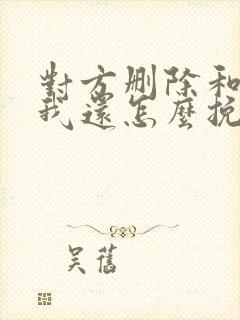 對方刪除和
我還怎麼挽
吴舊